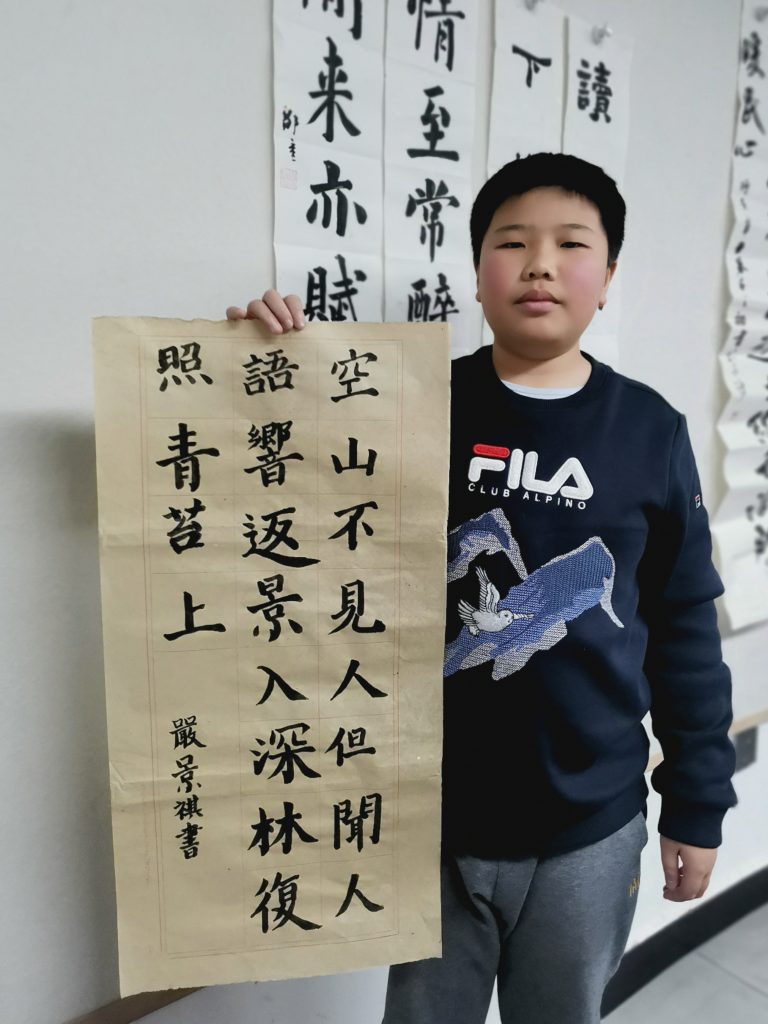 空山不見人但聞人
語響返景入深林復
照青苔上
嚴景祺書
FILA
CLUB ALPINO
讀
下
情至常醉
來亦賦
暖民心